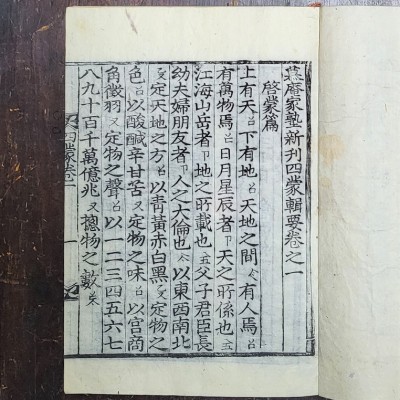 家塾新刊四蒙輯要卷之一
啓蒙篇
上有天吕下有地吕天地之間有人焉吕
有萬物焉日月星辰者卩天之所係也五
江海山岳者卩地之所載也五父子君臣長
幼夫婦朋友者卩人之大倫也以東西南北
又定天地之方吕以靑黃赤白黑又定物之
色吕以酸鹹辛甘苦又定物之味吕以宮商
角徵羽又定物之聲吕以一二三四五六七
八九十百千萬億兆又摠物之數
四蒙卷一
一